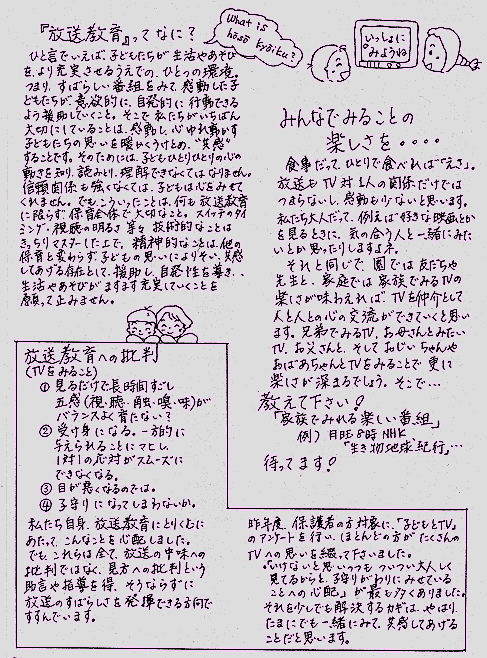 『放送教育』ってなに？
What is
hōsō kyōiku?
いっしょに
みようね
ひと言でいえば、子どもたちが生活やあそび
を、より充実させるうえでの、ひとつの環境。
つまり、すばらしい番組をみて、感動した子
どもたちが、意欲的に、自発的に行動できる
よう援助していくこと。そこで私たちがいちばん
大切にしていることは、感動し、心ゆれ動かす
子どもたちの思いを暖かくうけとめ、“共感”
することです。そのためには、子どもひとりひとりの心の
動きを知り、読みとり、理解できなくてはなりません。
信頼関係も強くなくては、子どもは心をみせて
くれません。でも、こういったことは、何も放送教育
に限らず保育全体で大切なこと。スイッチのタイ
ミング、視聴の明るさ等々技術的なことは
きっちりマスターした上で、精神的なことは、他の
保育と変わらず子どもの思いによりそい、共感
してあげる存在として、援助し、自発性を導き、
生活やあそびがますます充実していくことを
願って止みません。
みんなでみることの
楽しさを・・・・
食事だって、ひとりで食べれば“えさ”。
放送もTV対1人の関係だけでは
つまらないし、感動も少ないと思います。
私たち大人だって、例えば好きな映画とか
を見るときに、気の合う人と一緒にみた
いとか思ったりしますよネ。
それと同じで、園では友だちや
先生と、家庭では家族でみるTVの
楽しさが味わえれば、TVを仲介として
人と人との心の交流ができていくと思い
ます。兄弟でみるTV、お母さんとみたい
TV、お父さんと、そしておじいちゃんや
おばあちゃんとTVをみることで更に
楽しさが深まるでしょう。そこで…
教えて下さい！
「家族でみれる楽しい番組」
例）月旺8時NHK
「生き物地球紀行」…
待ってます！
放送教育への批判
(TVをみること)
① 見るだけで長時間すごし
五感(視・聴・触・嗅・味)が
バランスよく育たない？
② 受け身になる。一方的に
与えられることにマヒし、
1対1の応対がスムーズに
できなくなる。
③ 目が悪くなるのでは。
④ 子守りになってしまわないか。
私たち自身、放送教育にとりくむに
あたって、こんなことを心配しました。
でも、これらは全て、放送の中味への
批判ではなく、見方への批判という
助言や指導を得、そうならずに
放送のすばらしさを発揮できる方向で
すすんでいます。
昨年度、保護者の方対象に、「子どもとTV」
のアンケートを行い、ほとんどの方がたくさんの
TVへの思いを綴って下さいました。
。「いけないと思いつつも ついつい大人しく
見てるからと、子守りがわりにみせている
ことへの心配」が最も多くありました。
それを少しでも解決するカギは、やはり、
たまにでも一緒にみて、共感してあげる
ことだと思います。